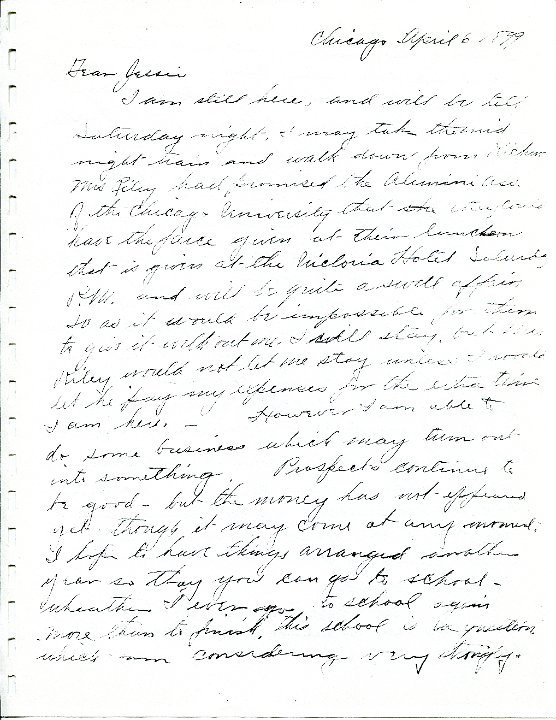 Chicago April 6 1899
Dear Jessie
I am still here, and will be till
Saturday night. I may take the mid
night train and walk down from
Mrs Riley had promised the Alumini Ass.
of the Chicago University that she would
have the farce given at their luncheon
that is given at the Victoria Hotel Saturday
P.M. and will be quite a swell affair
so as it would be impossible for them
to give it without me I will stay, but Mrs
Riley would not let me stay unless I would
let her pay my expenses for the extra time
I am here. - However I am able to
do some business which may turn out
into something. Prospects continue to
be good - but the money has not appeared
yet though it may come at any moment.
I hope to have things arranged another
year so that you can go to school -
wheather I ever go to school again
more than to finish this school is a question
which am considering very